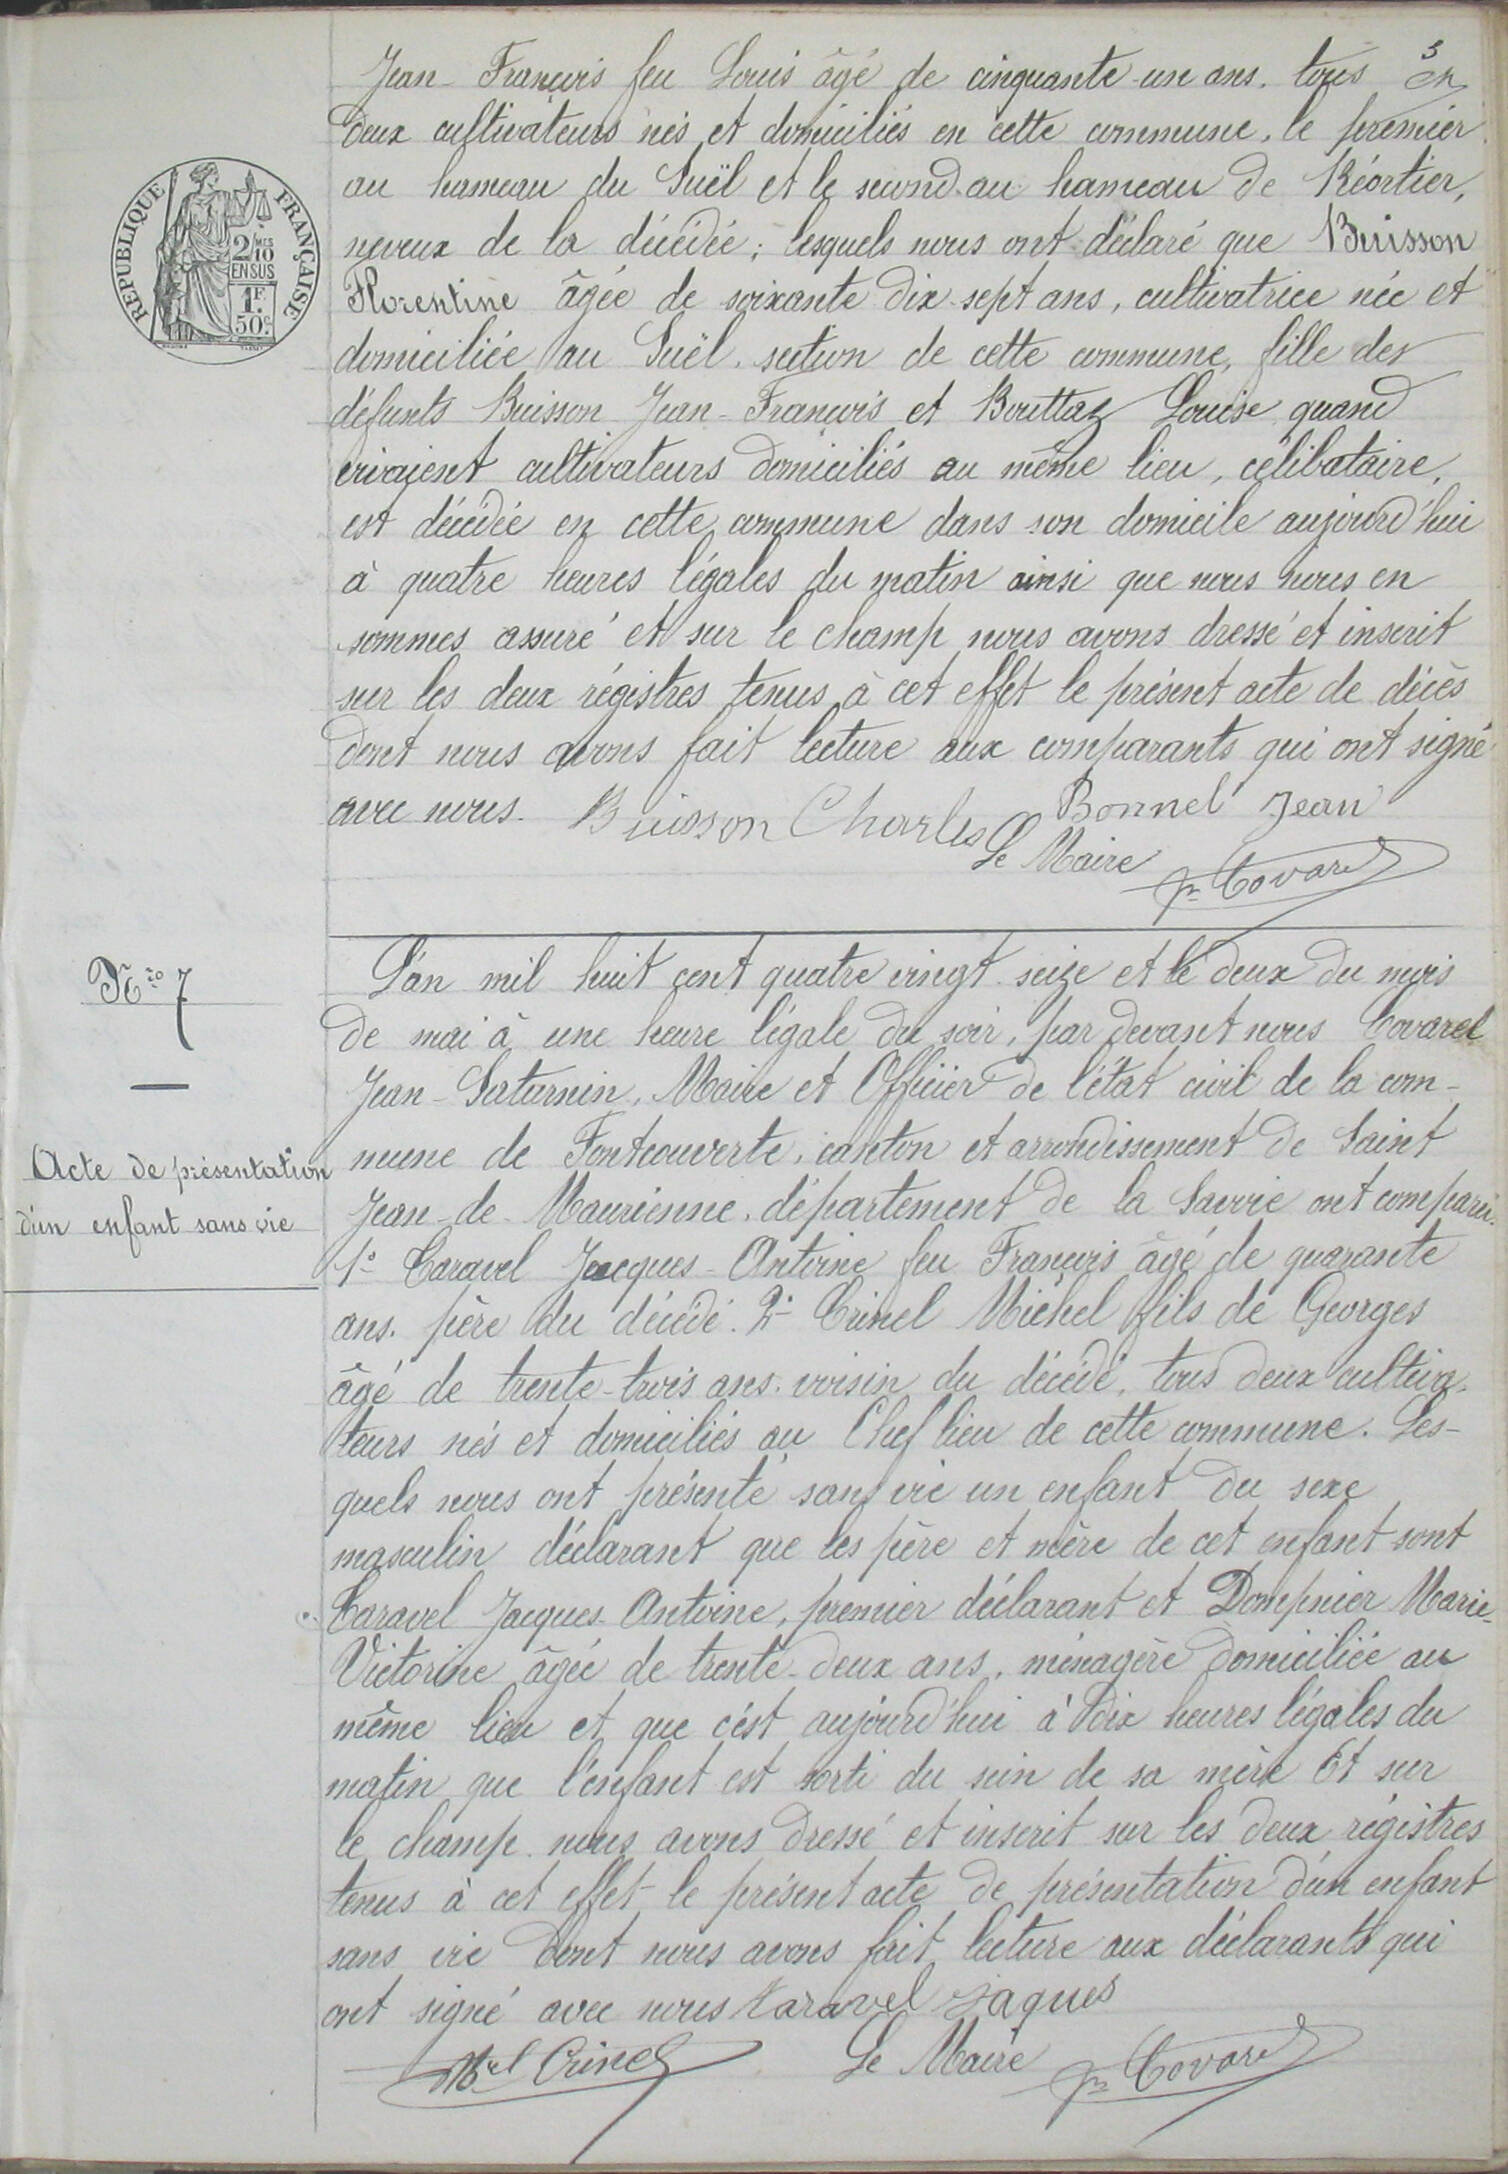 3
Jean-François feu Louis âgé de cinquante-un ans. tous
deux cultivateurs nés et domiciliés en cette commune, le premier
au hameau du Suël et le second au hameau de Réortier,
neveux de la décédée; lesquels nous ont déclaré que Buisson
Florentine âgée de soixante dix-sept ans, cultivatrice née et
domiciliée au Suël, section de cette commune, fille des
défunts Buisson Jean-François et Bouttaz Louise quand
vivaient cultivateurs domiciliés au même lieu, célibataire,
est décédée en cette commune dans son domicile aujourd'hui
à quatre heures légales du matin ainsi que nous nous en
sommes assuré et sur le champ nous avons dressé et inscrit
sur les deux régistres tenus à cet effet le présent acte de décès
dont nous avons fait lecture aux comparants qui ont signé
avec nous. Buisson Charles Bonnel Jean
Le Maire Jn Covarel
REPUBLIQUE FRANÇAISE
2/10 MES
EN SUS
1F.
50c.
No 7
Acte de présentation
d'un enfant sans vie
L'an mil huit cent quatre vingt-seize et le deux du mois
de mai à une heure légale du soir, par devant nous Covarel
Jean-Saturnin, Maire et Officier de l'état civil de la com-
mune de Fontcouverte, canton et arrondissement de Saint
Jean-de-Maurienne, département de la Savoie ont comparu.
1o Caravel Jacques-Antoine feu François âgé de quarante
ans. père du décédé. 2o Crinel Michel fils de Georges
âgé de trente-trois ans. voisin du décédé, tous deux cultiva-
teurs nés et domiciliés au Chef lieu de cette commune. Les-
quels nous ont présenté sans vie un enfant du sexe
masculin déclarant que les père et mère de cet enfant sont
Caravel Jacques-Antoine, premier déclarant et Dompnier Marie-
Victorine âgée de trente-deux ans, ménagère domiciliée au
même lieu et que c'est aujourd'hui à dix heures légales du
matin que l'enfant est sorti du sein de sa mère Et sur
le champ nous avons dressé et inscrit sur les deux régistres
tenus à cet effet le présent acte de présentation d'un enfant
sans vie dont nous avons fait lecture aux déclarants qui
ont signé avec nous Caravel Jaques
Mel Crinel Le Maire Jn Covarel